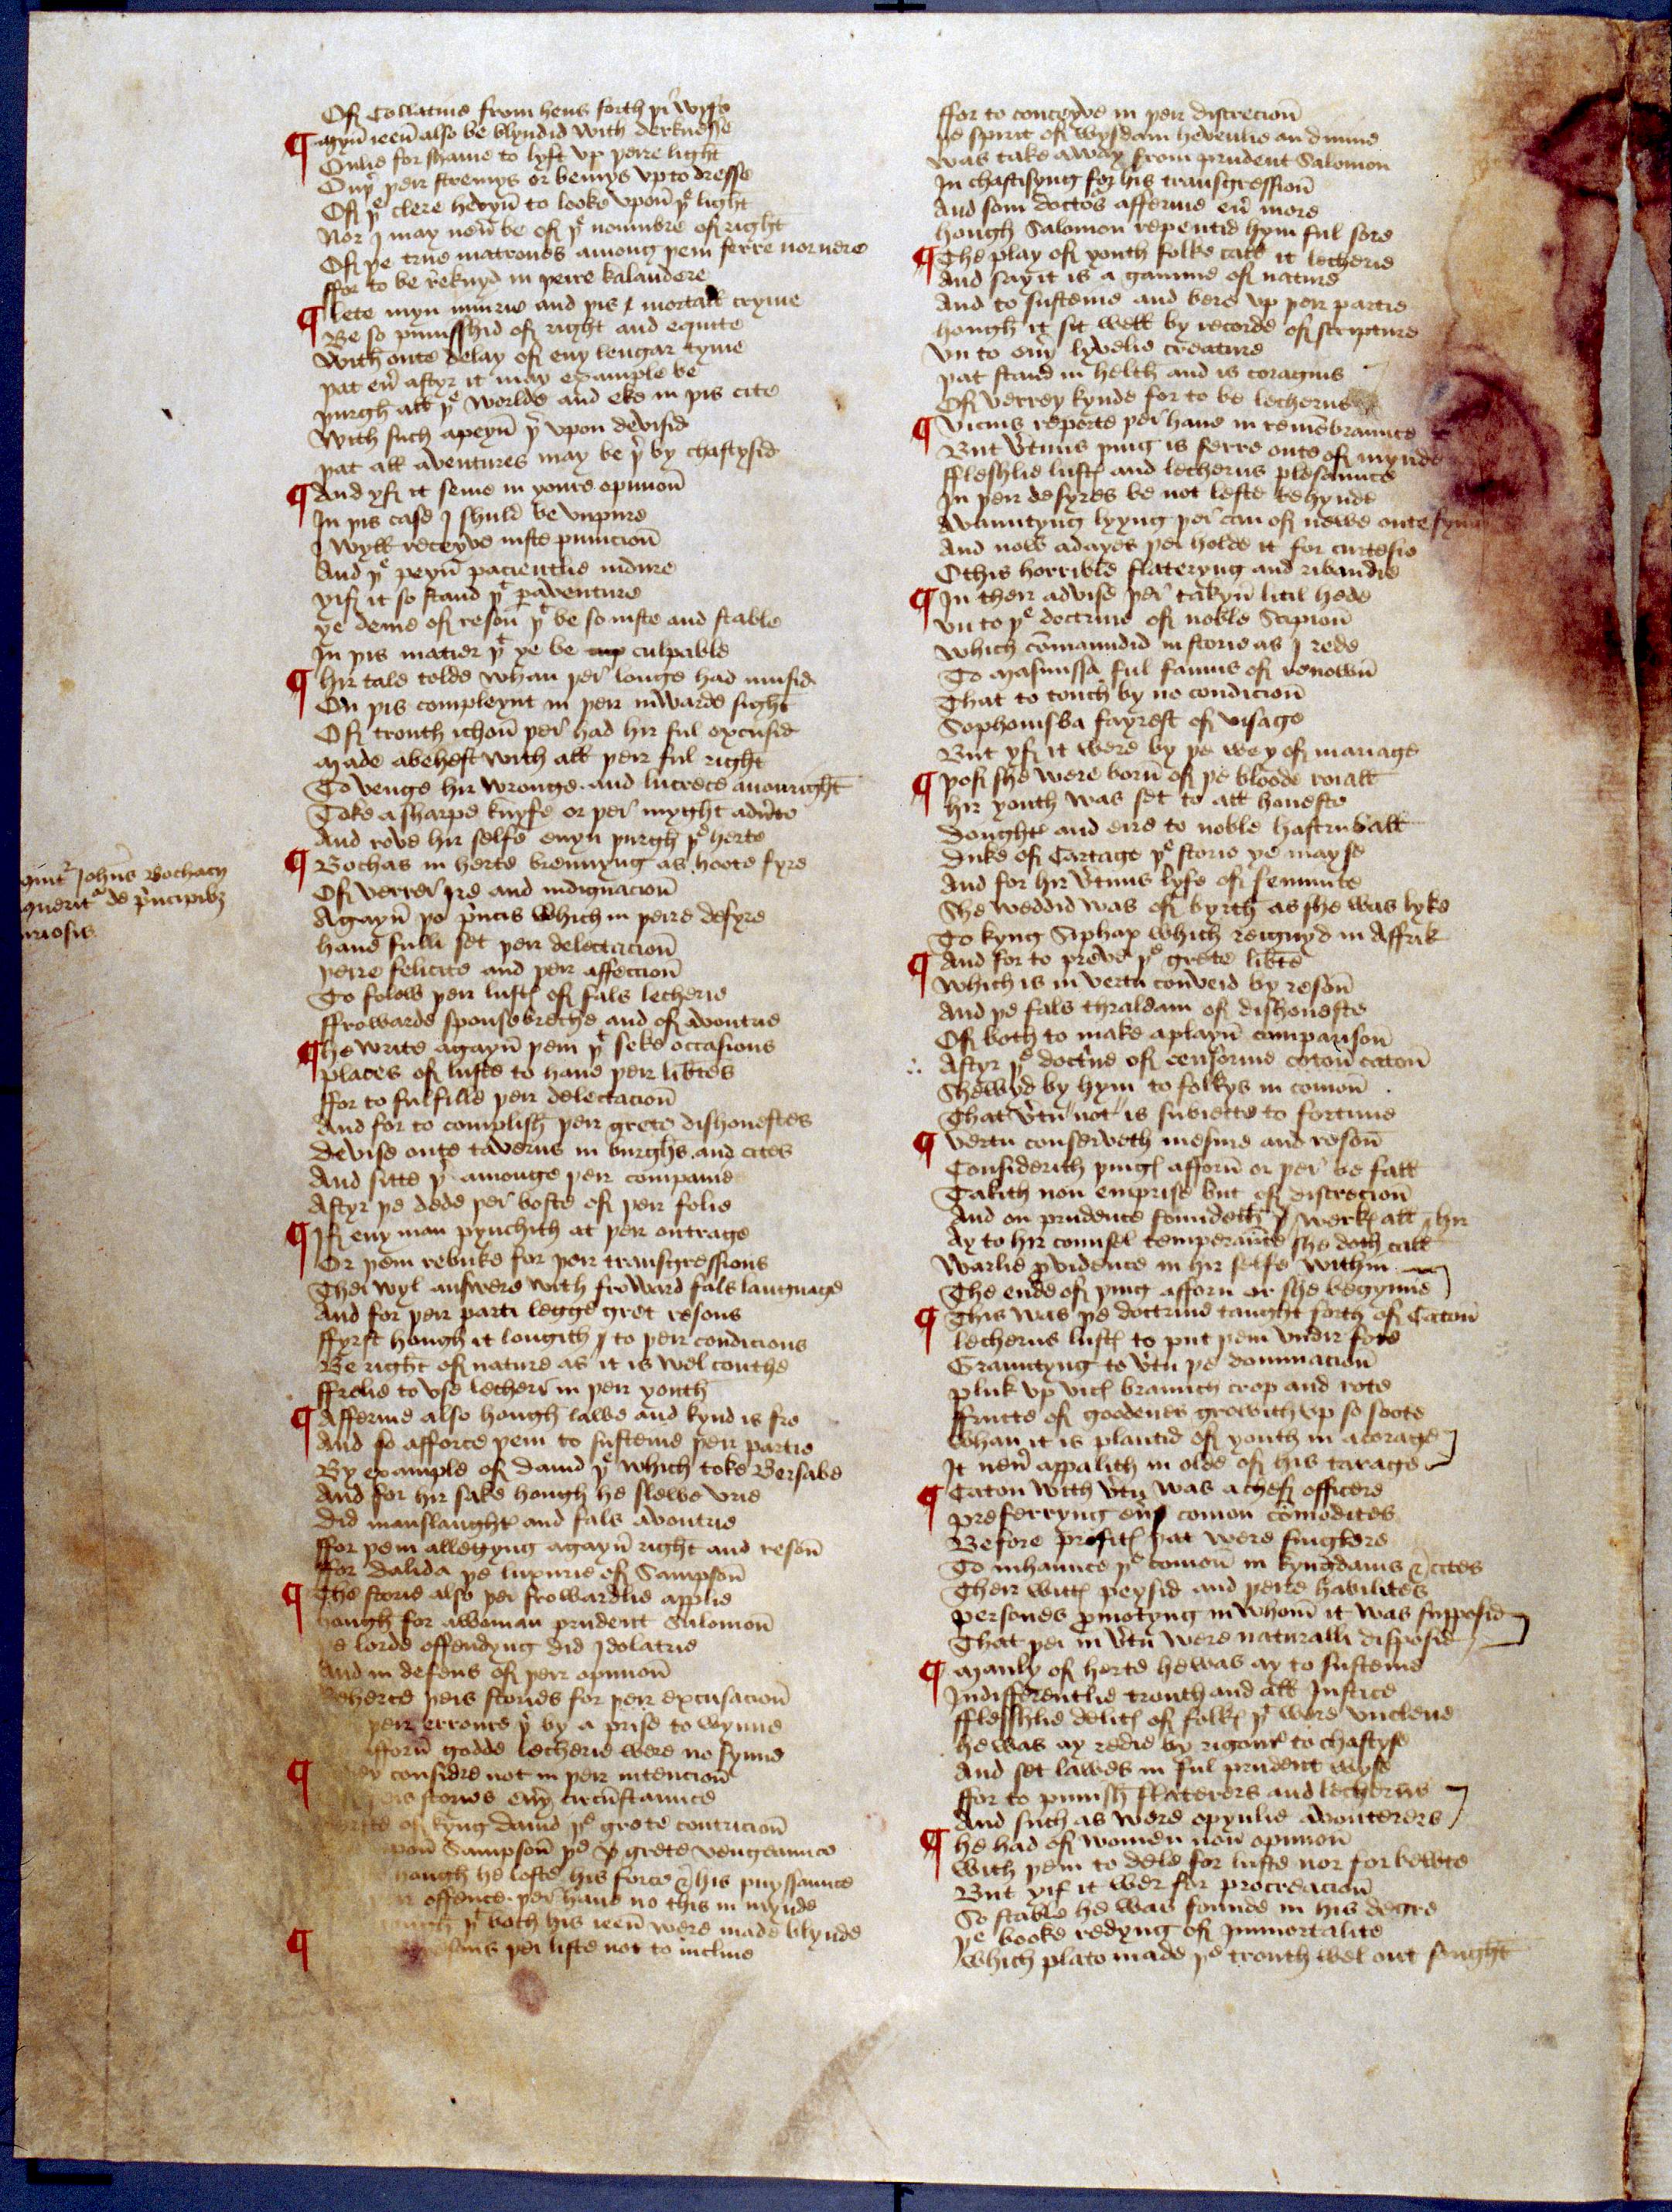 Of Collatine from hens forth þi wyfe
¶ Myn ieen also be blyndid with derknesse
Onlie for shame to lyft vp þeire light
Ony þeir stremys or bemys vp to dresse
Of þe clere hevyn to looke vpon þe light
Nor I may neuer be of þe noumbre of right
Of þe true matrones among þem ferre nor nere
ffor to be reknyd in þeire kalandere
¶ lete myn iniurie and þis mortall cryme
Be so punisshid of right and equite
With oute delay of eny lengar tyme
þat euer aftyr it may example be
þurgh all þe worlde and eke in þis cite
With such a peyn þer vpon devisid
þat all aventures may be þer by chastysid
¶ And yf it seme in youre opinion
In þis case I shuld be vnpure
I wyll receyve iuste punicion
And þe peyn pacientlie indure
yif it so stand þt paraventure
ye deme of reson þt be so iuste and stable
In þis matier þt ye be culpable
¶ Hir tale tolde whan þei longe had musid
On þis compleynt in þeir inwarde sight
Of trouth ichon þei had hir ful excusid
Made a behest with all þeir ful right
To venge hir wronge and lucrece anonright
Toke a sharpe knyfe or þei myght aduerte
And rove hir selfe euyn þurgh þe herte
¶ Bochas in herte brennyng as hoote fyre
Of verrei yre and indignacion
Agayn þo princis which in þeire desyre
Haue fulli set þeir delectacion
þeire felicite and þeir affeccion
To folow þeir lustes of fals lecherie
ffrowarde spousebreche and of avoutrie
¶ He write agayn þem þt seke occasions
places of luste to haue þeir libertes
ffor to fulfille þeir delectacion
And for to complish þeir grete dishonestes
Devise oute taverns in burghs and cites
And sitte þer amonge þeir companie
Aftyr þe dede þei boste of þeir folie
¶ If eny man pynchith at þeir outrage
Or þem rebuke for þeir transgressions
Thei wyl answere with froward fals language
And for þeir parti legge gret resons
ffyrst hough it longith to þeir condicions
Be right of nature as it is wel couthe
ffrelie to vse lecheri in þeir youth
¶ Afferme also hough lawe and kynd is fre
And so afforce þem to susteine þeir partie
By example of Dauid þe which toke Bersabe
And for hir sake hough he slewe vrie
Did manslaughter and fals avoutrie
ffor þem alleggyng agayn right and reson
ffor Dalida þe luxurie of Sampson
¶ The storie also þei frowardlie applie
hough for a woman prudent Salomon
þe lorde offendyng did Idolatrie
And in defens of þeir opinion
Reherce þeis stories for þeir excusacion
þeir erroure þer by a prise to wynne
afforn godde lecherie were no synne
¶ considre not in þeir intencion
stories euery circumstaunce
of kyng Dauid þe grete contricion
vpon Sampson þe grete vengeaunce
hough he loste his force & his puyssaunce
offence þei haue no this in mynde
þt both his ieen were made blynde
¶ þei liste not to incline
Johannes Bochacy
de principibus
ffor to conceyve in þeir discrecion
þe spirit of wysdam hevenlie and divine
was take away from prudent Salomon
In chastisyng for his transgression
And som doctors afferme euer more
hough Salomon repentid hym ful sore
¶ The play of youth folke call it lecherie
And say it is a gamme of nature
And to susteine and bere vp þeir partie
hough it sit well by recorde of scripture
vn to euery lyvelie creature
þat stand in helth and is coragius
Of verrey kynde for to be lecherus
¶ Vicius reporte þei haue in remembraunce
But vertuus þing is ferre oute of mynde
ffleshlie lustes and lecherus plesaunce
In þeir desyres be not lefte behynde
Avauntyng lyyng þei can of newe oute fynde
And now adayes þei holde it for curtesie
Othis horrible flateryng and ribaudie
¶ In their advise þei takyn litil hede
vn to þe doctrine of noble Scipion
which commaundid in storie as I rede
To Masinissa ful famus of renown
That to touch by no condicion
Sophonisba fayrest of visage
But yf it were by þe wey of mariage
¶ þof she were born of þe bloode roiall
hir youth was set to all honeste
Doughter and eire to noble hastruball
Duke of Cartage þe storie ye may se
And for hir vertuus lyfe of feminite
She weddid was of byrth as she was lyke
To kyng Siphax which reignyd in Affrik
¶ And for to preve þe grete liberte
which is in vertu conveid by reson
And þe fals thraldam of dishoneste
Of both to make a playn comparison
Aftyr þe doctrine of censorine caton
Shewyd by hym to folkys in comon
That vertu not is subiette to fortune
¶ Vertu conserveth mesure and reson
Considerith þinges afforn or þei be fall
Takith non emprise but of discrecion
And on prudence foundeth werkes all hir
Ay to hir counsel temperaunce she doth call
Warlie providence in hir selfe within
The ende of þing afforn or she begynne
¶ This was þe doctrine taught forth of Caton
lecherus lustes to put þem vndir fote
Grauntyng to vertu þe dominacion
pluk vp vices braunch crop and rote
ffrute of goodenes growith vp so soote
Whan it is plantid of youth in a corage
It neuer appalith in olde of his tarage
¶ Caton with vertu was a chef officere
preferryng comon comodites
Before profites þat were singlere
To inhaunce þe comon in kyngdams & cites
Their wittes peysid and þeire habilites
persones promotyng in whom it was supposid
That þei in vertu were naturalli disposid
¶ Manly of herte he was ay to susteine
Indifferentlie trouth and all Iustice
fflesshlie delites of folkes þt were vnclene
he was ay redie by rigour to chastyse
And set lawes in ful prudent wyse
ffor to punish flaterers and lecherus
And such as were opynlie avouterers
¶ he had of women non opinion
With þem to dele for luste nor for bewte
But yif it wer for procreacion
So stable he was founde in his degre
þe booke redyng of Inmortalite
which plato made þe trouth wel out sought